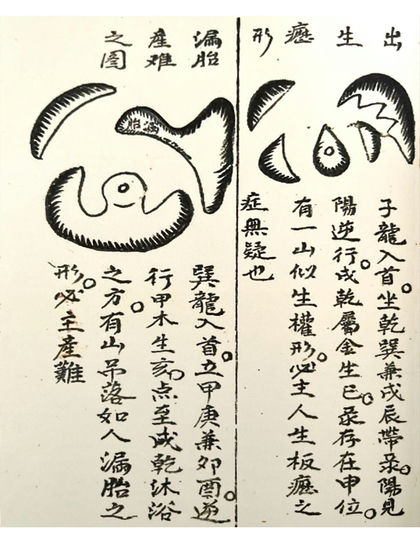 出生癧形
子龍入首。坐乾巽兼戌辰帶录。陽見
陽逆行。戌乾屬金生巳。录存在申位。
有一山似生權形。必主人生板癧之
症無疑也
漏胎
產难
之圖
巽龍入首。立甲庚兼卯酉。逆
行甲木生亥。点至戌乾沐浴
之方。有山吊落如人漏胎之
形。必主產難